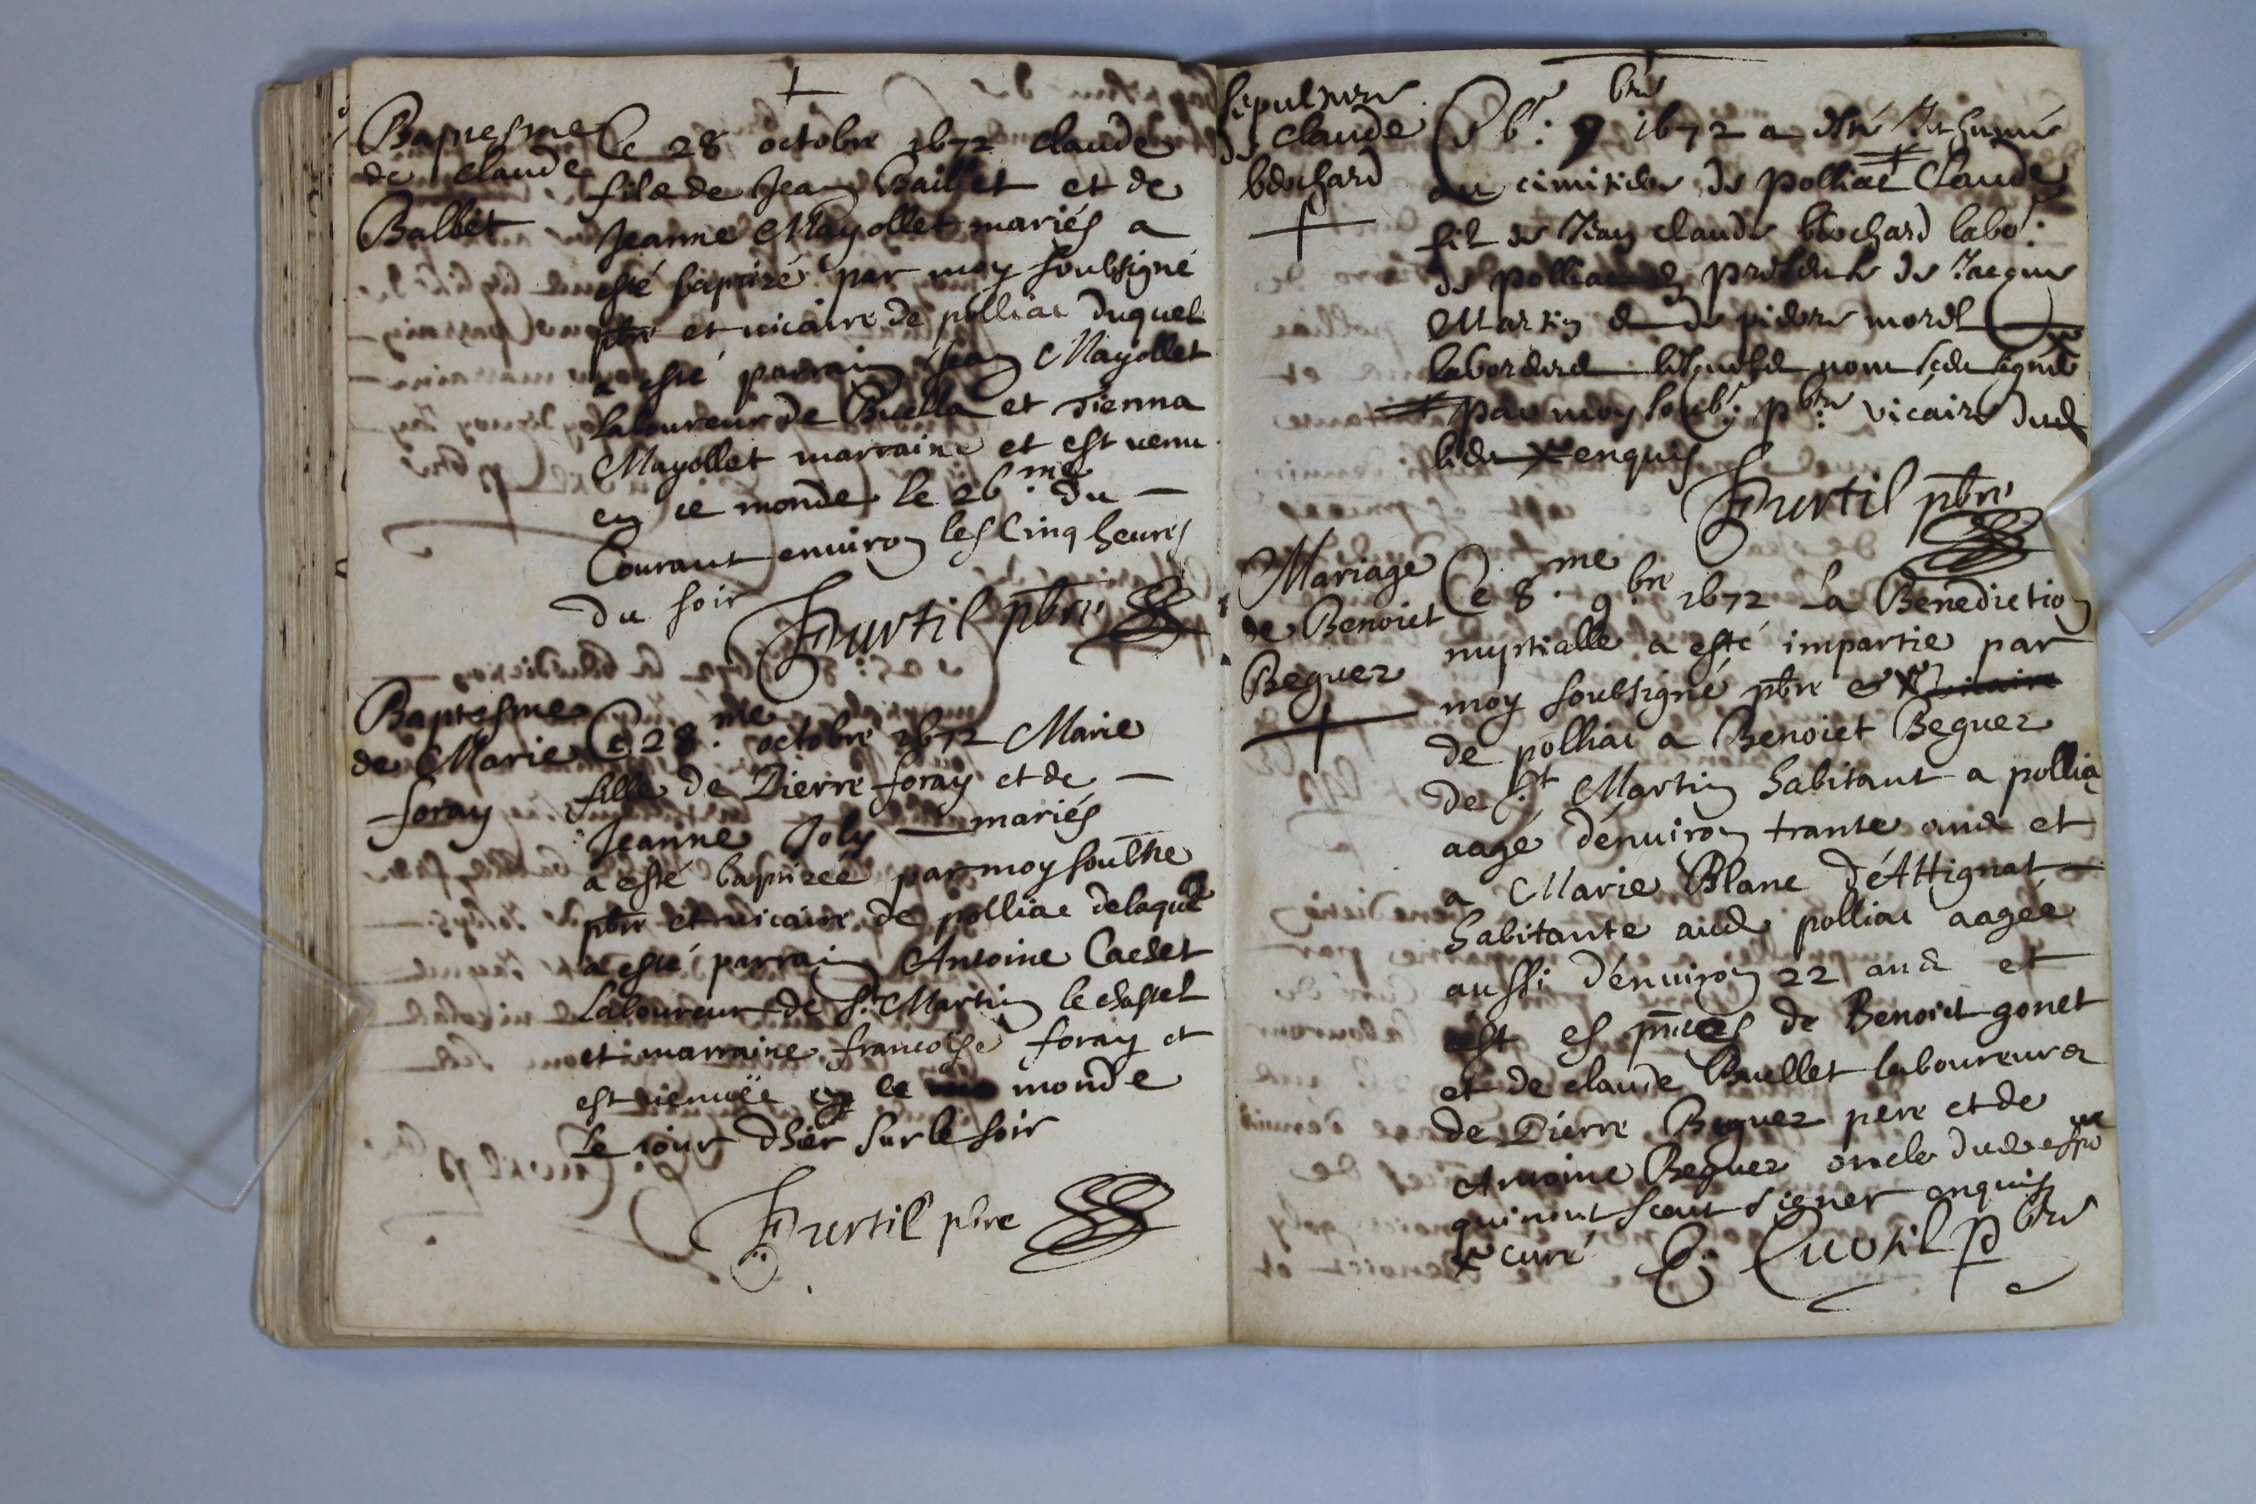 Baptesme
de Claude
Ballet
Ce 28 octobre 1672 claude
fils de Jean Baillet et de
Jeanne Mayollet mariés a
esté baptizé par moy soubsigné
pbre et vicaire de polliac duquel
a esté parrain Jean Mayollet
laboureur de Buella et Pienna
Mayollet marraine et est venu
en ce monde le 26.me du
Courant environ les Cinq heures
du soir
Curtil pbre
Baptesme
de Marie
foray
Ce 28.me octobre 1672 Marie
fille de Pierre foray et de
Jeanne Joly mariés
a esté baptizée par moy
pbre et vicaire de polliac delaquel
a esté parrain Antoine Cadet
Laboureur de St. Martin le chastel
et marraine francoise foray et
est venuë en ce monde
le jour dhier sur le soir
Curtil pbre
sepulture
de Claude
brochard
1672 a esté Inhumé
au cimitiere de polliac Claude
fil de Jean claude brochard labo.r
de polliac en presence de Jacque
Martin et de pierre morel
par moy soub.r pbre vicaire dud
lieu enquis
Curtil pbre
Mariage
de Benoict
Beguez
Ce 8.me 9.bre 1672 La Benediction
nuptialle a esté impartie par
moy soubsigné pbre
de polliac a Benoict Beguez
de St Martin habitant a pollia
aagé d'environ trante ans et
a Marie Blanc d'Attignat
habitante aud polliac aagée
aussi d'environ 22 ans et
est es pnces de Benoict gonet
et de claude Buellet laboureurs
de Pierre Beguez pere et de
Antoine Beguez oncle dud
qui nont sceut signer enquis
curé Curtil pbre